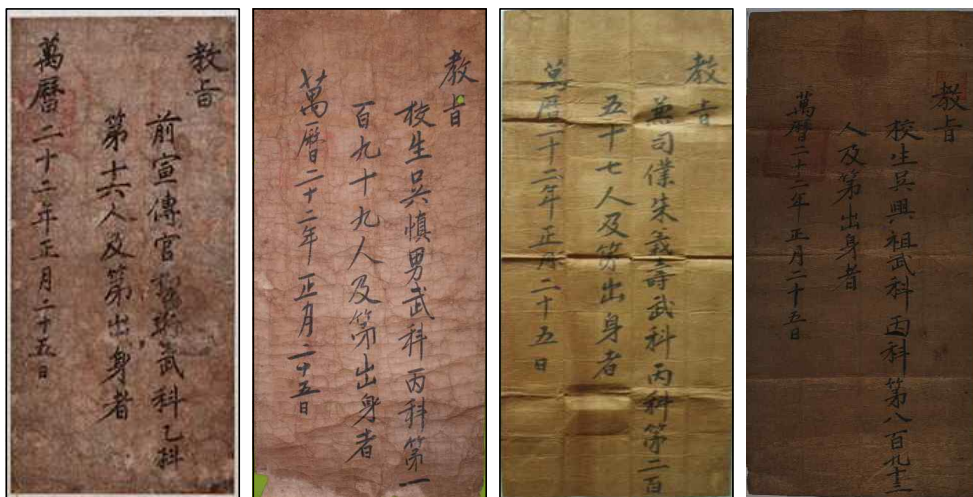 教旨
前宣傳官武科乙科
第十六人及第出身者
萬曆二十二年正月二十五日
教旨
校生吳慎男武科丙科第一
百九十九人及第出身者
萬曆二十二年正月二十五日
教旨
兼司僕朱義壽武科丙科第二百
五十七人及第出身者
萬曆二十二年正月二十五日
教旨
校生吳興祖武科丙科第八百九十
人及第出身者
萬曆二十二年正月二十五日